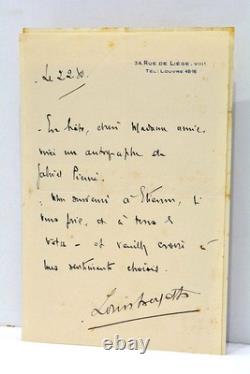 34, RUE DE LIÈGE. VIII!
TEL: LOUVRE 4816
Le 22 X.
En hâte, chère Madame amie,
voici un autographe de
Gabriel Pierné.
Mon souvenir à Etienne, s'il
vous plaît, et à tous les
vôtres - et veuillez croire à
mes sentiments choisis.
Louis